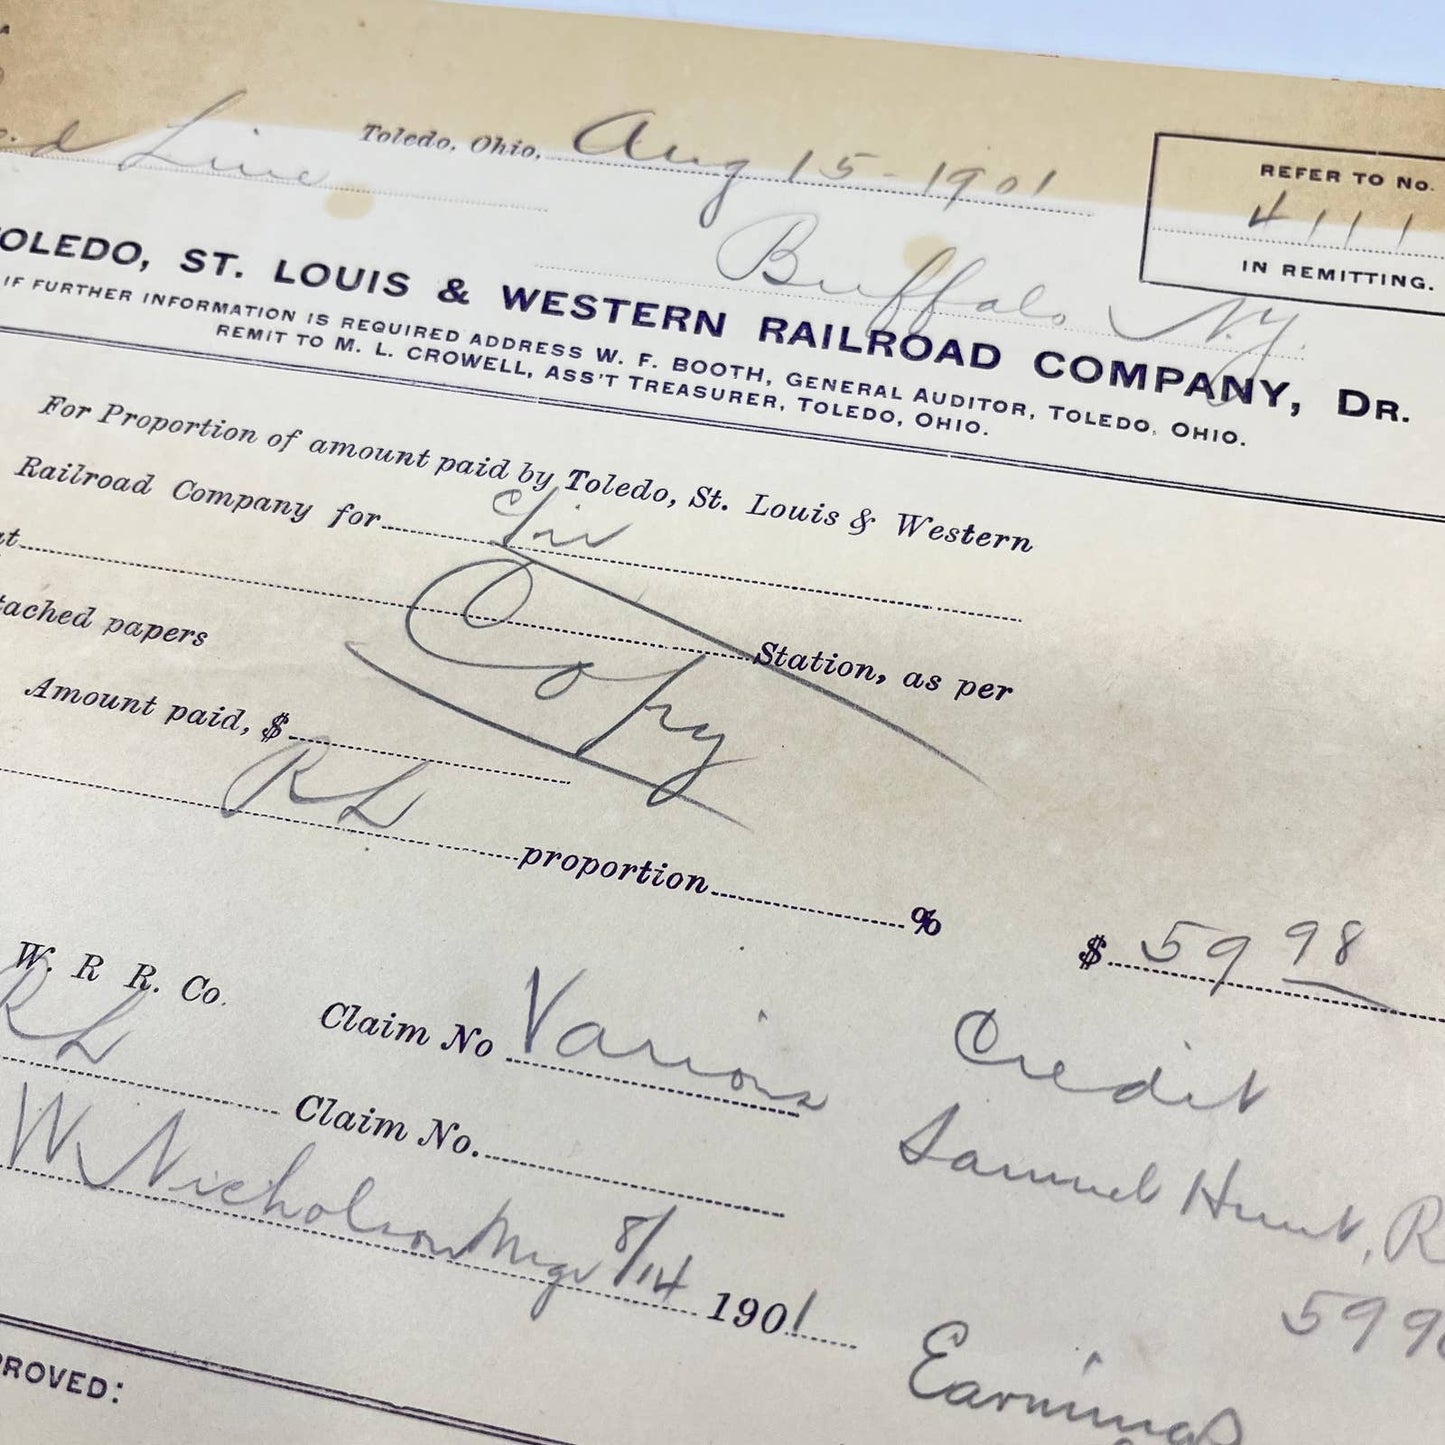 Toledo, Ohio, Aug 15-1901
REFER TO No.
4111
IN REMITTING.
d Line
Buffalo, N.Y.
TOLEDO, ST. LOUIS & WESTERN RAILROAD COMPANY, DR.
IF FURTHER INFORMATION IS REQUIRED ADDRESS W. F. BOOTH, GENERAL AUDITOR, TOLEDO, OHIO.
REMIT TO M. L. CROWELL, ASS'T TREASURER, TOLEDO, OHIO.
For Proportion of amount paid by Toledo, St. Louis & Western
Railroad Company for
Station, as per
tached papers
Copy
Amount paid, $
RL proportion %
$ 59 98
W. R R. Co. Claim No Various
Credit
RL Claim No.
Samuel Hunt, R
W Nicholson Mgr 8/14 1901
59 98
Earnings
PROVED: